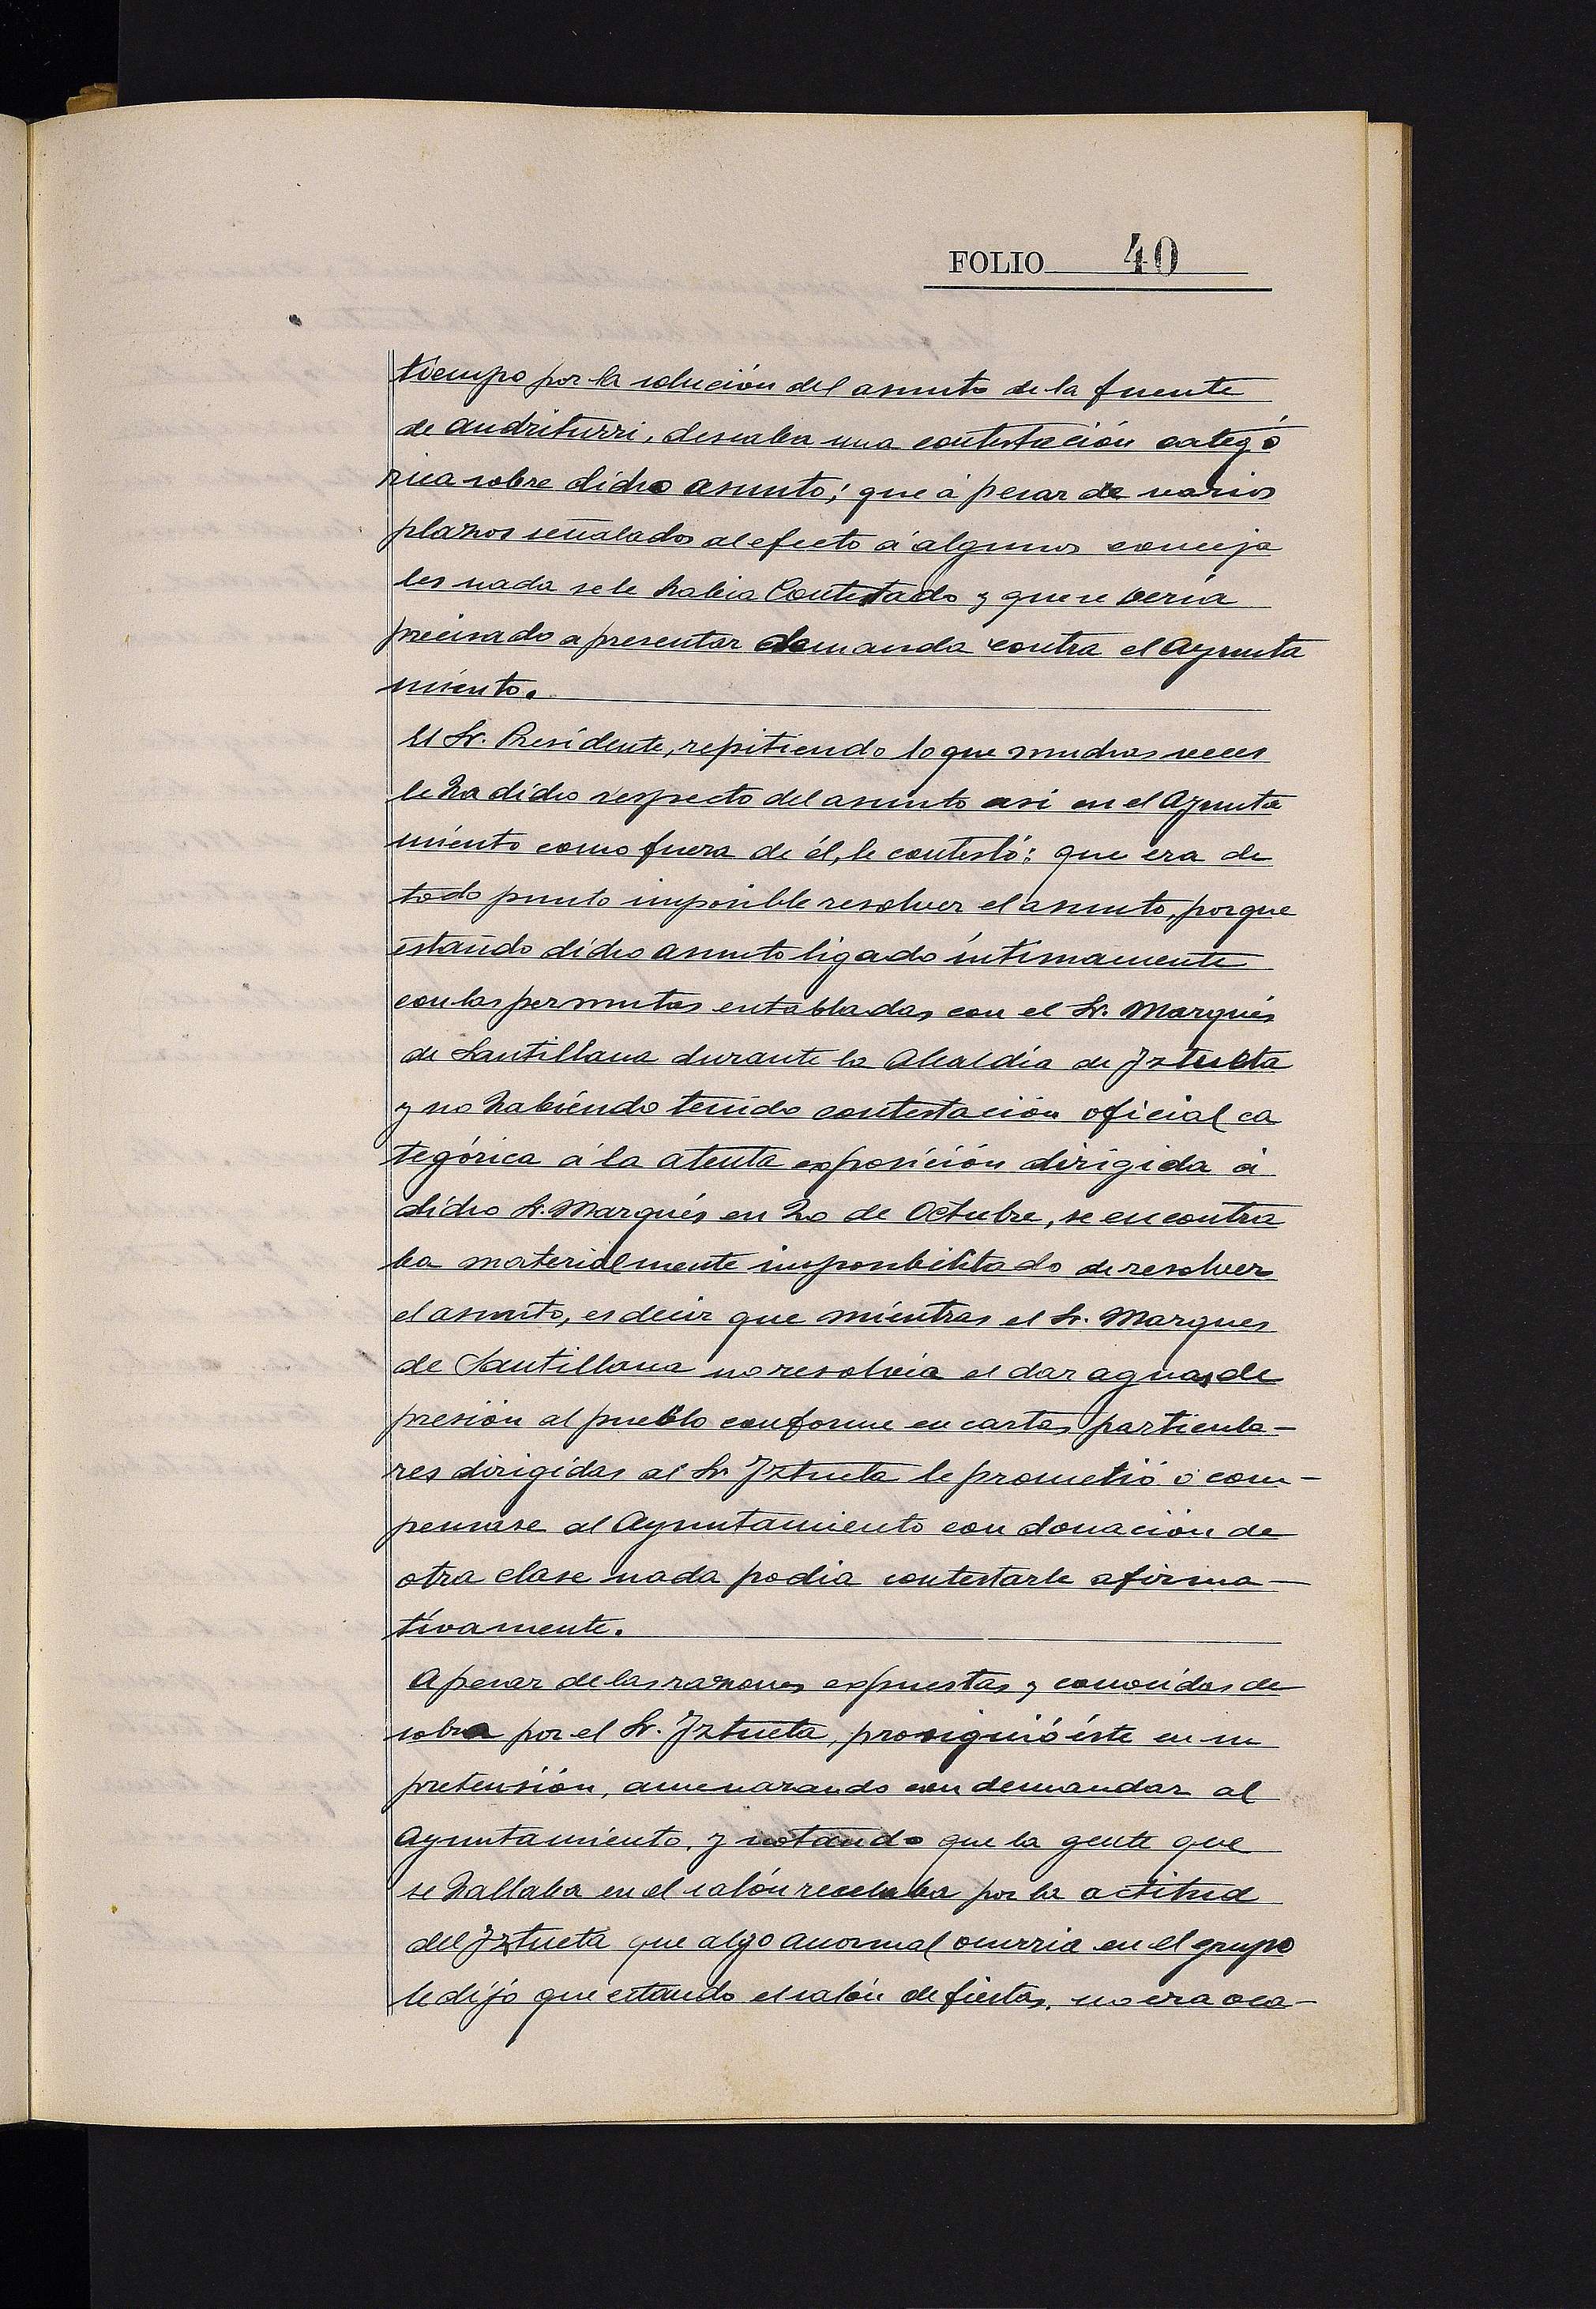 FOLIO 40
tiempo por la solución del asunto de la fuente
de Andriturri, deseaba una contestación categó
rica sobre dicho asunto; que á pesar de varios
plazos señalados al efecto á algunos conceja
les nada se le habia Contestado y que se veria
precisado a presentar demanda contra el Ayunta
miento.
El Sr. Presidente, repitiendo lo que muchas veces
le ha dicho respecto del asunto asi en el Ayunta
miento como fuera de él, le contestó: que era de
todo punto imposible resolver el asunto, porque
estando dicho asunto ligado íntimamente
con las permutas entabladas con el Sr. Marqués
de Santillana durante la Alcaldia de Iztueta
y no habiendo tenido contestación oficial ca
tegórica á la atenta exposición dirigida á
dicho Sr. Marqués en 20 de Octubre, se encontra
ba materialmente imposibilitado de resolver
el asunto, es decir que mientras el Sr. Marques
de Santillana no resolvia el dar aguas de
presión al pueblo conforme en cartas particula-
res dirigidas al Sr. Iztueta le prometió ó com-
pensase al Ayuntamiento con donación de
otra clase nada podia contestarle afirma-
tivamente.
A pesar de las razones expuestas y conocidas de
sobra por el Sr. Iztueta, prosiguió éste en su
pretensión, amenazando con demandar al
Ayuntamiento, y notando que la gente que
se hallaba en el salón recelaba por la actitud
del Iztueta que algo anormal ocurria en el grupo
le dijó que estando el salón de fiestas, no era oca-